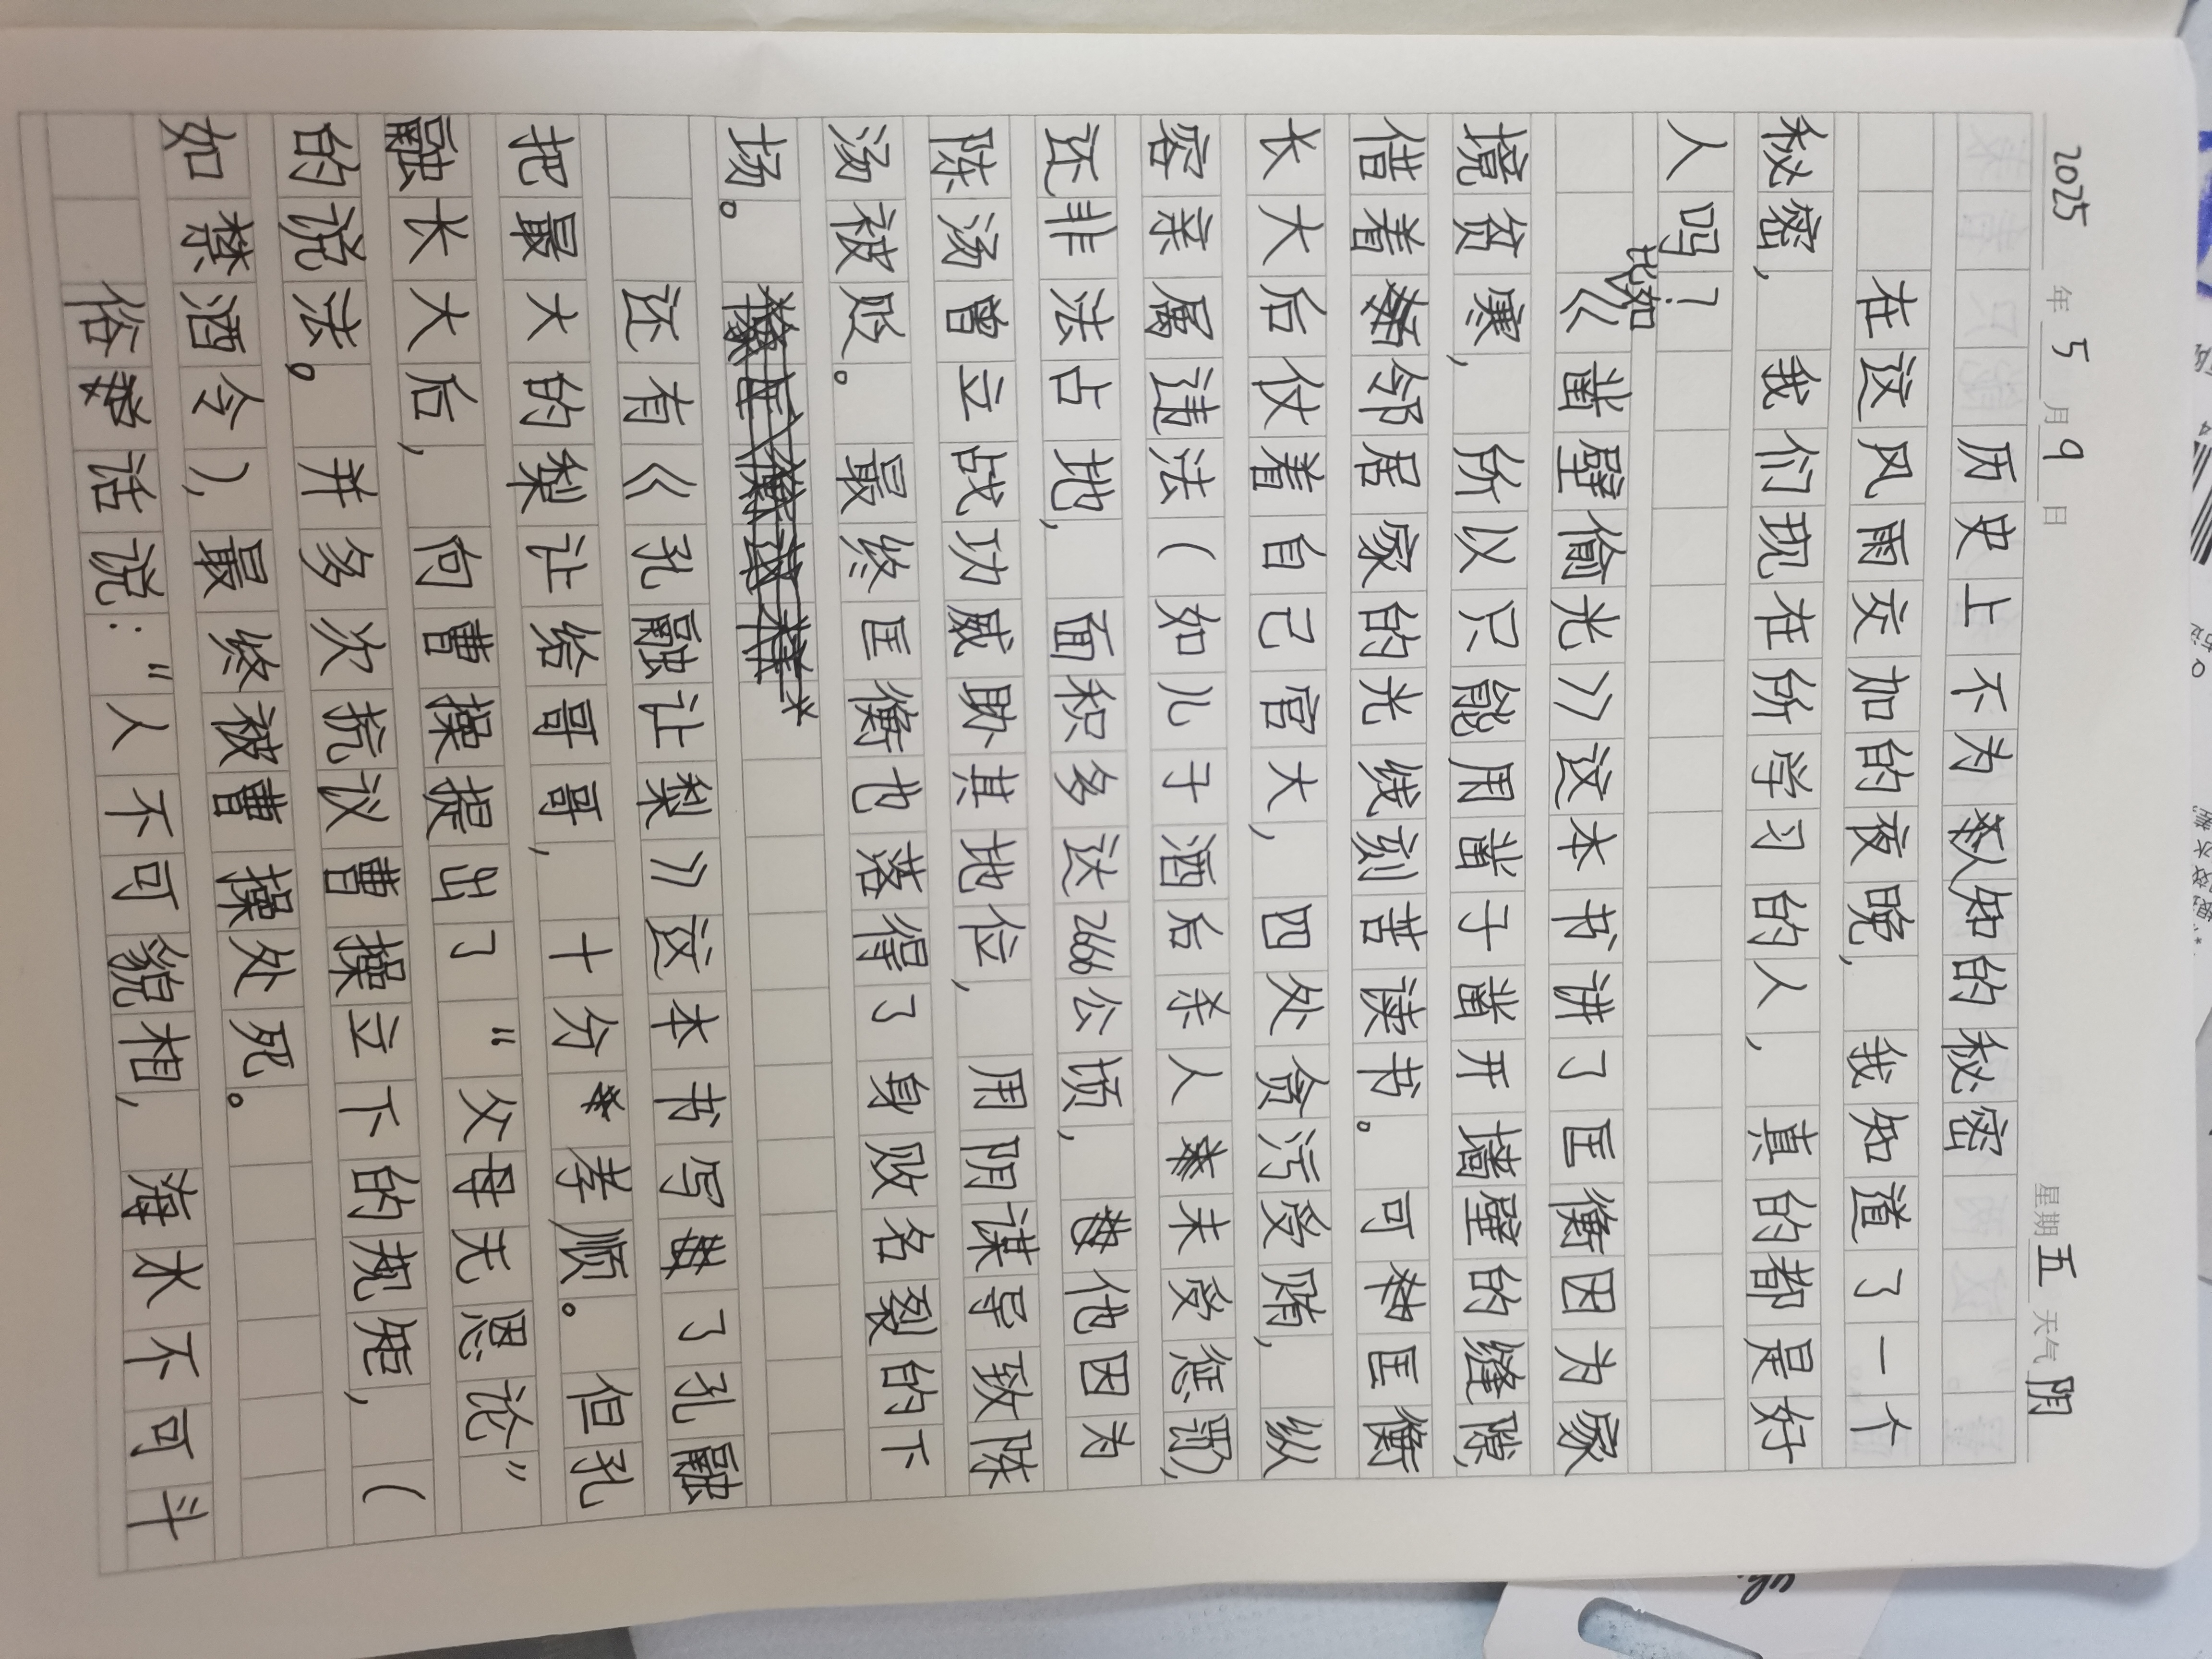 2025年5月9日 星期五 天气阴
历史上不为人知的秘密
在这风雨交加的夜晚，我知道了一个
秘密，我们现在所学习的人，真的都是好
人吗？
比如《凿壁偷光》这本书讲了匡衡因为家
境贫寒，所以只能用凿子凿开墙壁的缝隙，
借着邻居家的光线刻苦读书。可匡衡
长大后仗着自己官大，四处贪污受贿，纵
容亲属违法（如儿子酒后杀人未受惩罚），
还非法占地，面积多达266公顷，他因为
陈汤曾立战功威胁其地位，用阴谋导致陈
汤被贬。最终匡衡也落得了身败名裂的下
场。
还有《孔融让梨》这本书写了孔融
把最大的梨让给哥哥，十分孝顺。但孔
融长大后，向曹操提出了“父母无恩论”
的说法。并多次抗议曹操立下的规矩，（
如禁酒令），最终被曹操处死。
俗话说：“人不可貌相，海水不可斗